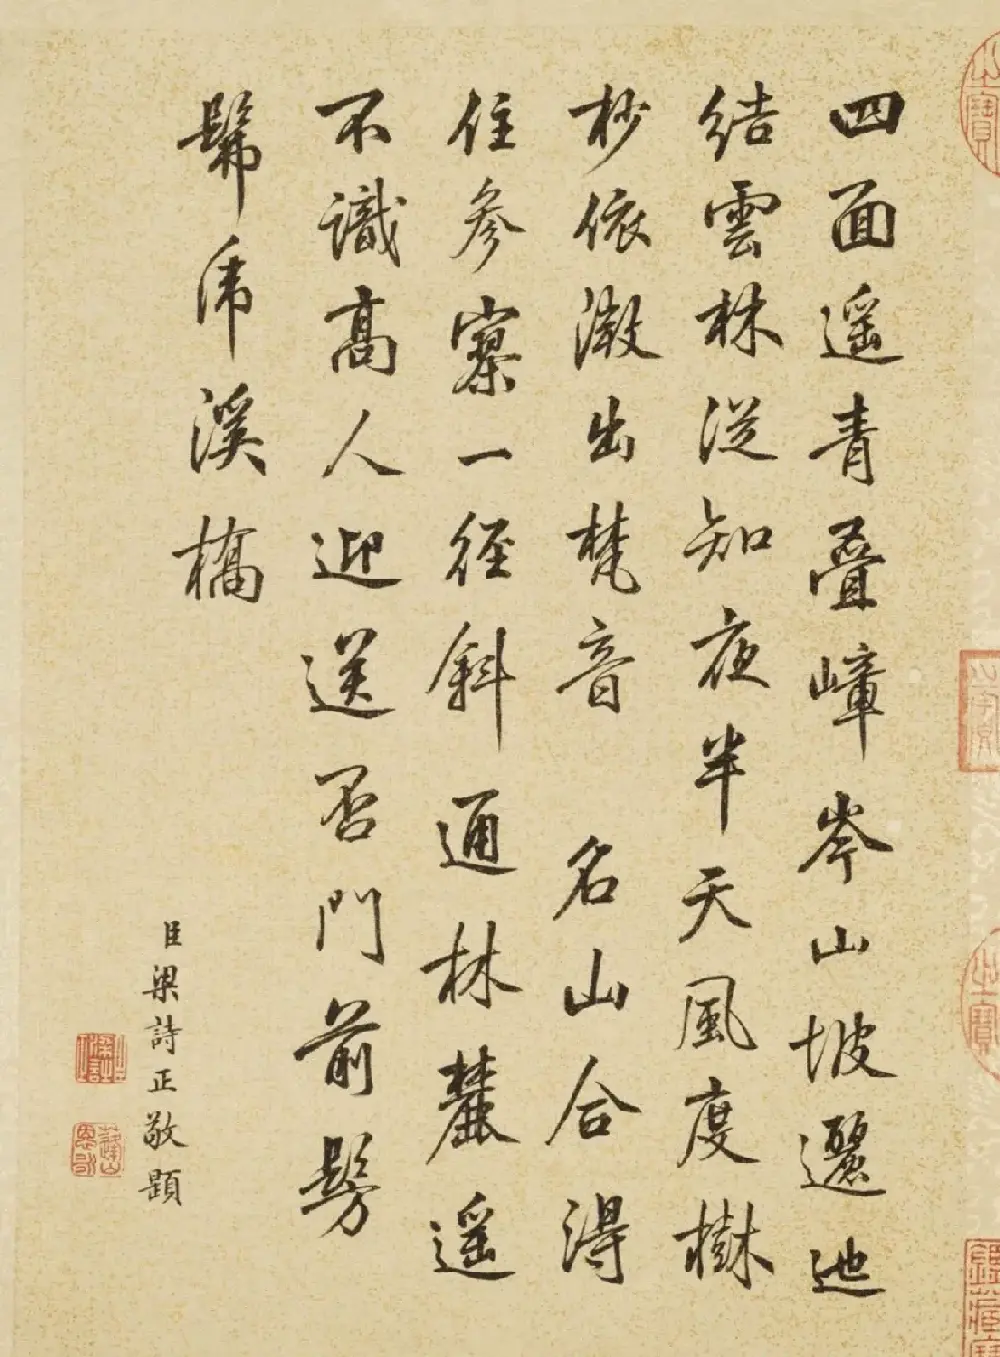 四面遥青叠嶂岑山坡邐迤
結雲林從知夜半天風度樹
杪依微出梵音 名山合得
住參寥一徑斜通林麓遥
不識高人迎送否門前髣
髴虎溪橋
臣梁詩正敬題